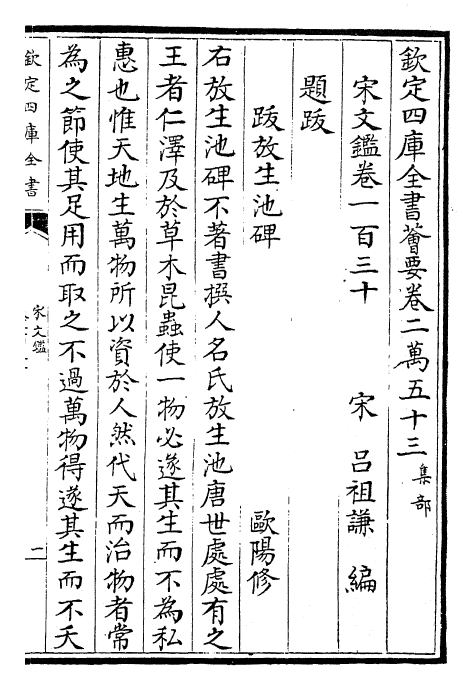 欽定四庫全書薈要卷二萬五十三 集部
宋文鑑卷一百三十 宋 呂祖謙 編
題跋
跋放生池碑 歐陽修
右放生池碑不著書撰人名氏放生池唐世處處有之
王者仁澤及於草木昆蟲使一物必遂其生而不為私
惠也惟天地生萬物所以資於人然代天而治物者常
為之節使其足用而取之不過萬物得遂其生而不夭
欽定四庫全書
宋文鑑